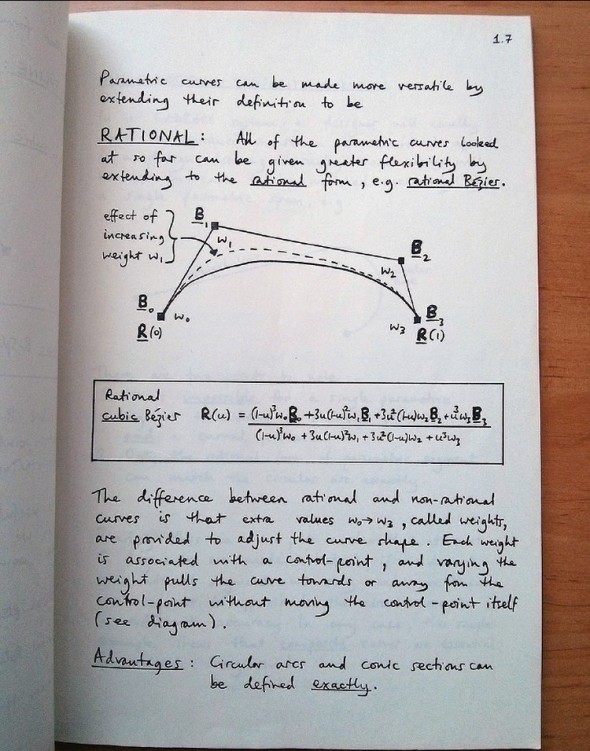 1.7
Parametric curves can be made more versatile by
extending their definition to be
RATIONAL: All of the parametric curves looked
at so far can be given greater flexibility by
extending to the rational form, e.g. rational Bézier.
effect of
increasing
weight w₁
B₁
w₁
B₂
w₂
B₀
R(0)
w₀
w₃
B₃
R(1)
Rational
cubic Bézier R(u) = (1-u)³w₀B₀ + 3u(1-u)²w₁B₁ + 3u²(1-u)w₂B₂ + u³w₃B₃
(1-u)³w₀ + 3u(1-u)²w₁ + 3u²(1-u)w₂ + u³w₃
The difference between rational and non-rational
curves is that extra values w₀→w₃, called weights,
are provided to adjust the curve shape. Each weight
is associated with a control-point, and varying the
weight pulls the curve towards or away from the
control-point without moving the control-point itself
(see diagram).
Advantages: Circular arcs and conic sections can
be defined exactly.